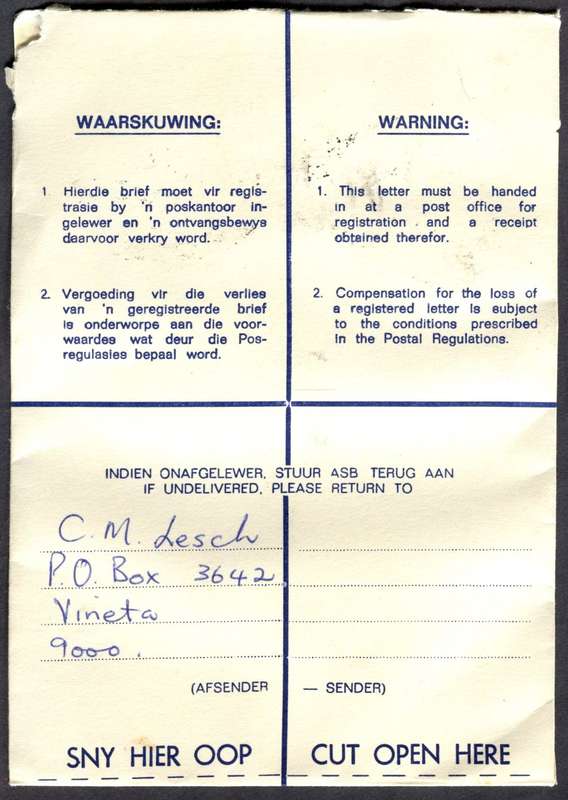 WAARSKUWING:
1 Hierdie brief moet vir regis-
trasie by 'n poskantoor in-
gelewer en 'n ontvangsbewys
daarvoor verkry word.
2. Vergoeding vir die verlies
van 'n geregistreerde brief
is onderworpe aan die voor-
waardes wat deur die Pos-
regulasies bepaal word.
WARNING:
1. This letter must be handed
in at a post office for
registration and a receipt
obtained therefor.
2. Compensation for the loss of
a registered letter is subject
to the conditions prescribed
in the Postal Regulations.
INDIEN ONAFGELEWER, STUUR ASB TERUG AAN
IF UNDELIVERED, PLEASE RETURN TO
C.M. Lesch
P.O. Box 3642
Vineta
9000.
(AFSENDER — SENDER)
SNY HIER OOP CUT OPEN HERE